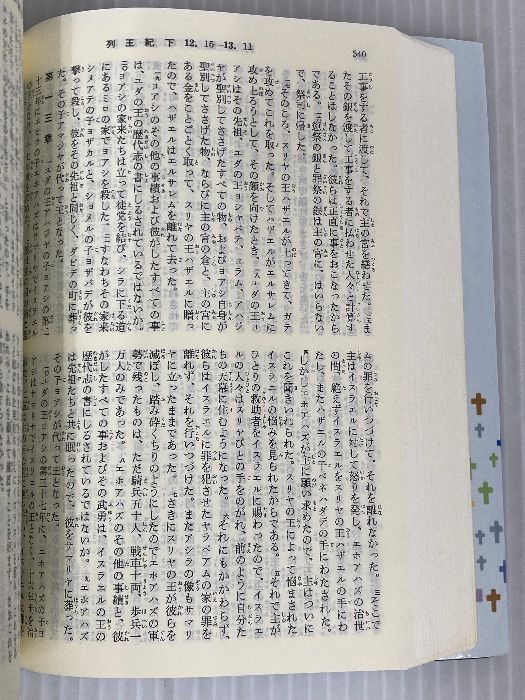 列王紀下 12. 15—13. 11
540
工事をする者に渡して、それで主の宮を繕わせた。またその銀を渡して工事をする者に払わせた人々と計算することはしなかった。彼らは正直に事をおこなったからである。ただし愆祭の銀と罪祭の銀は主の宮に、はいらないで、祭司に帰した。
そのころ、スリヤの王ハザエルが上ってきて、ガテを攻めてこれを取った。そしてハザエルがエルサレムに攻め上ろうとして、その顔を向けたとき、ユダの王ヨアシはその先祖、ユダの王ヨシャパテ、ヨラム、アハジヤが聖別してささげたすべての物、およびヨアシ自身が聖別してささげた物、ならびに主の宮の倉と、主の宮にある金をことごとく取って、スリヤの王ハザエルに贈ったので、ハザエルはエルサレムを離れて去った。
ヨアシのその他の事績および彼がしたすべての事は、ユダの王の歴代志の書にしるされているではないか。ヨアシの家来たちは立って徒党を結び、シラに下る道にあるミロの家でヨアシを殺した。すなわちその家来シメアテの子ヨザカルと、ショメルの子ヨザバデが彼を撃って殺し、彼をその先祖と同じく、ダビデの町に葬った。その子アマジヤが代って王となった。
第一三章
ユダの王アハジヤの子ヨアシの第二十三年に
ムの罪を行いつづけて、それを離れなかった。そこで主はイスラエルに対して怒りを発し、エホアハズの治世の間、絶えずイスラエルをスリヤの王ハザエルの手にわたし、またハザエルの子ベネハダデの手にわたされた。しかしエホアハズが主に願い求めたので、主はついにこれを聞きいれられた。スリヤの王によって悩まされたイスラエルの悩みを見られたからである。それで主がひとりの救助者をイスラエルに賜わったので、イスラエルの人々はスリヤびとの手をのがれ、前のように自分たちの天幕に住むようになった。それにもかかわらず、彼らはイスラエルに罪を犯させたヤラベアムの家の罪を離れず、それを行いつづけた。またアシラの像もサマリヤに立ったままであった。さきにスリヤの王が彼らを滅ぼし、踏み砕くちりのようにしたのでエホアハズの軍勢で残ったものは、ただ騎兵五十人、戦車十両、歩兵一万人のみであった。エホアハズのその他の事績と、彼がしたすべての事およびその武勇は、イスラエルの王の歴代志の書にしるされているではないか。エホアハズは先祖たちと共に眠ったので、彼をサマリヤに葬った。その子ヨアシが代って王となった。
ユダの王ヨアシの第三十七年に、エホアハズの子ヨアシはサマリヤでイスラエルの王となり、十六年